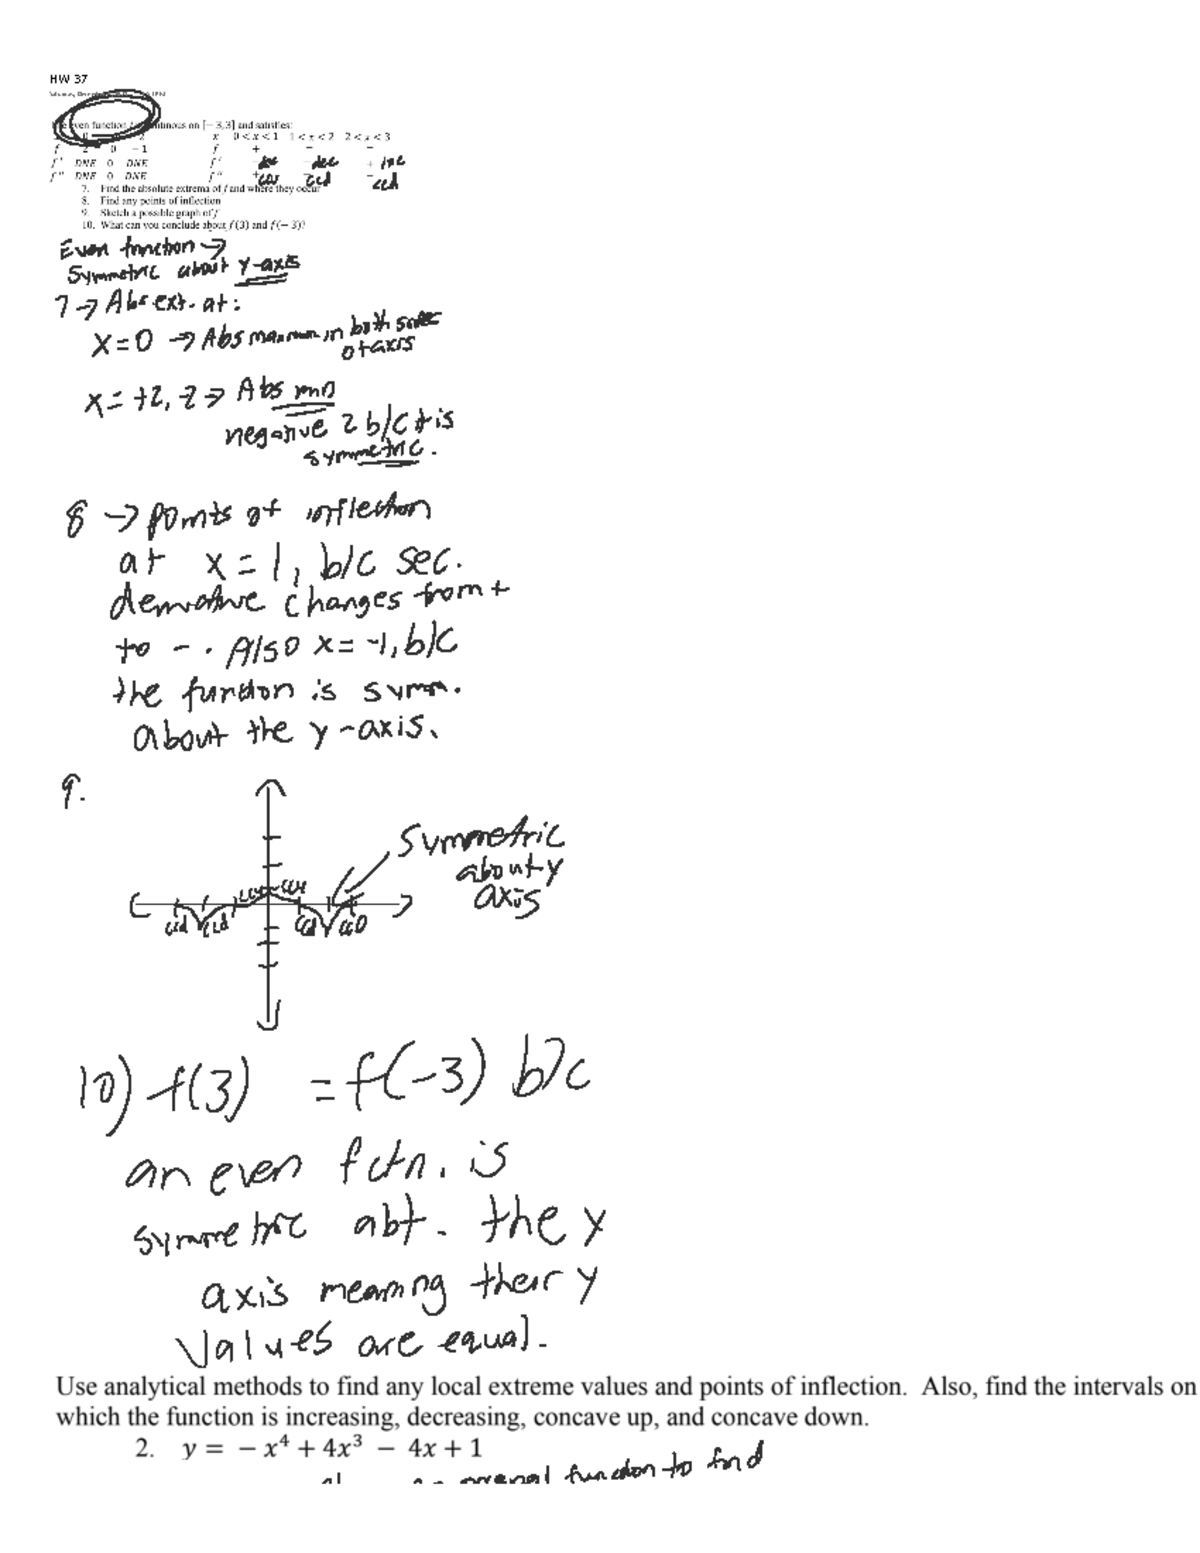 HW 37
even function continuous on [−3,3] and satisfies:
x 0 < x < 1 1 < x < 2 2 < x < 3
f 2 0 −1 f + − −
f' DNE 0 DNE f' dec − dec + inc
f'' DNE 0 DNE f'' + ccu − ccd − ccd
7. Find the absolute extrema of f and where they occur
8. Find any points of inflection
9. Sketch a possible graph of f
10. What can you conclude about f(3) and f(−3)?
Even function →
Symmetric about y-axis
7 → Abs ext. at:
x=0 → Abs maximum in both sides
of axis
x= +2, -2 → Abs min
negative 2 b/c it is
symmetric.
8 → points of inflection
at x = 1, b/c sec.
derivative changes from +
to - . Also x= -1, b/c
the function is symm.
about the y-axis.
9.
Symmetric
about y
axis
ccu ccu
ccd ccd ccd ccd
10) f(3) = f(-3) b/c
an even fctn. is
symmetric abt. the y
axis meaning their y
values are equal.
Use analytical methods to find any local extreme values and points of inflection. Also, find the intervals on
which the function is increasing, decreasing, concave up, and concave down.
2. y = − x⁴ + 4x³ − 4x + 1
function to find